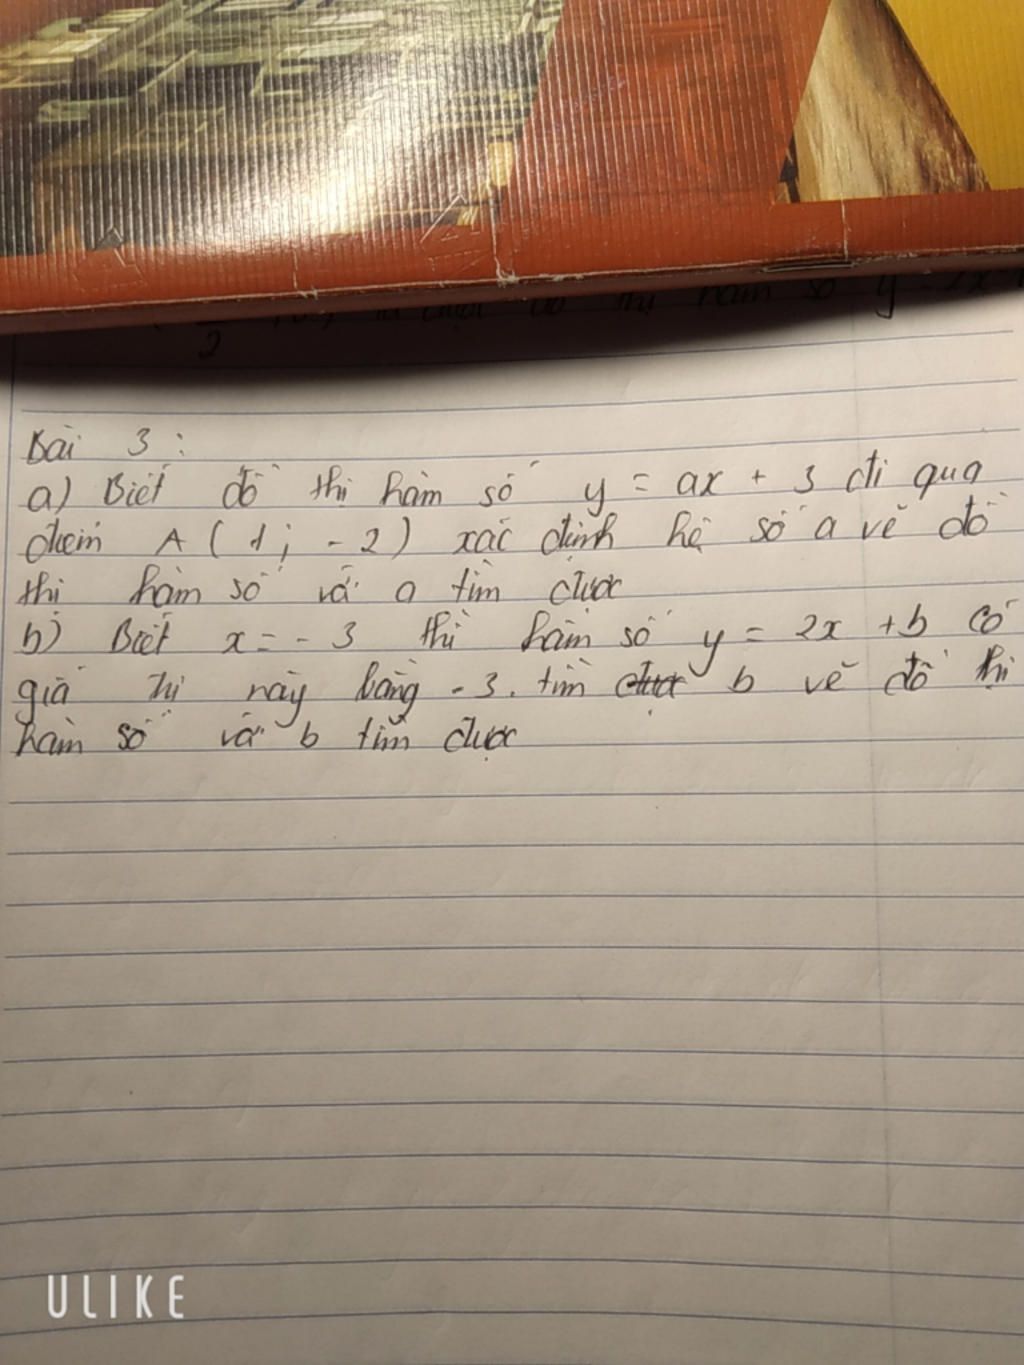 hàm số y = 2x
2
Bài 3 :
a) Biết đồ thị hàm số y = ax + 3 đi qua
điểm A ( 1 ; - 2 ) xác định hệ số a vẽ đồ
thị hàm số với a tìm được
b) Biết x = - 3 thì hàm số y = 2x + b có
giá trị này bằng - 3 . tìm b vẽ đồ thị
hàm số với b tìm được
ULIKE